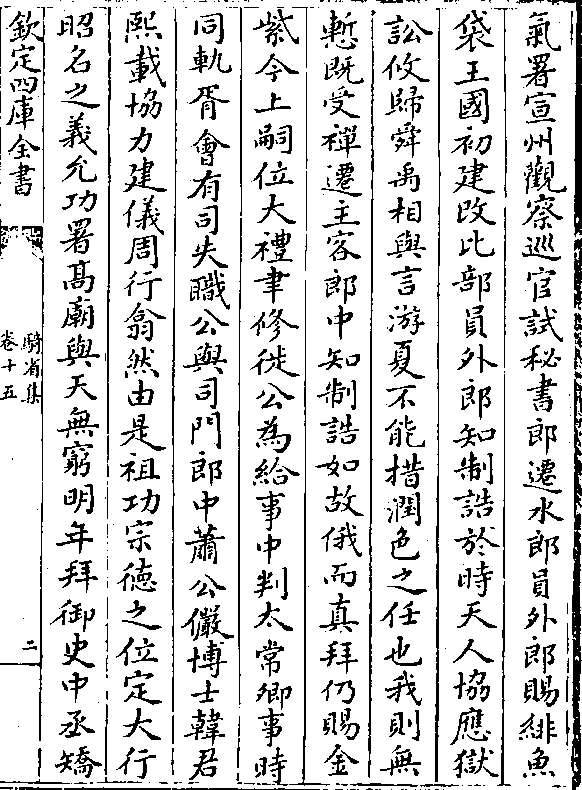 氣署宣州觀察巡官試秘書郎遷水郎員外郎賜緋魚
袋王國初建改比部員外郎知制誥於時天人協應獄
訟攸歸舜禹相與言游夏不能措潤色之任也我則無
慙既受禪遷主客郎中知制誥如故俄而真拜仍賜金
紫今上嗣位大禮聿修徙公為給事中判太常卿事時
同軌胥會有司失職公與司門郎中蕭公儼博士韓君
熙載協力建儀周行翕然由是祖功宗德之位定大行
昭名之義允功署髙廟與天無窮明年拜御史中丞矯
欽定四庫全書
騎省集
卷十五
二